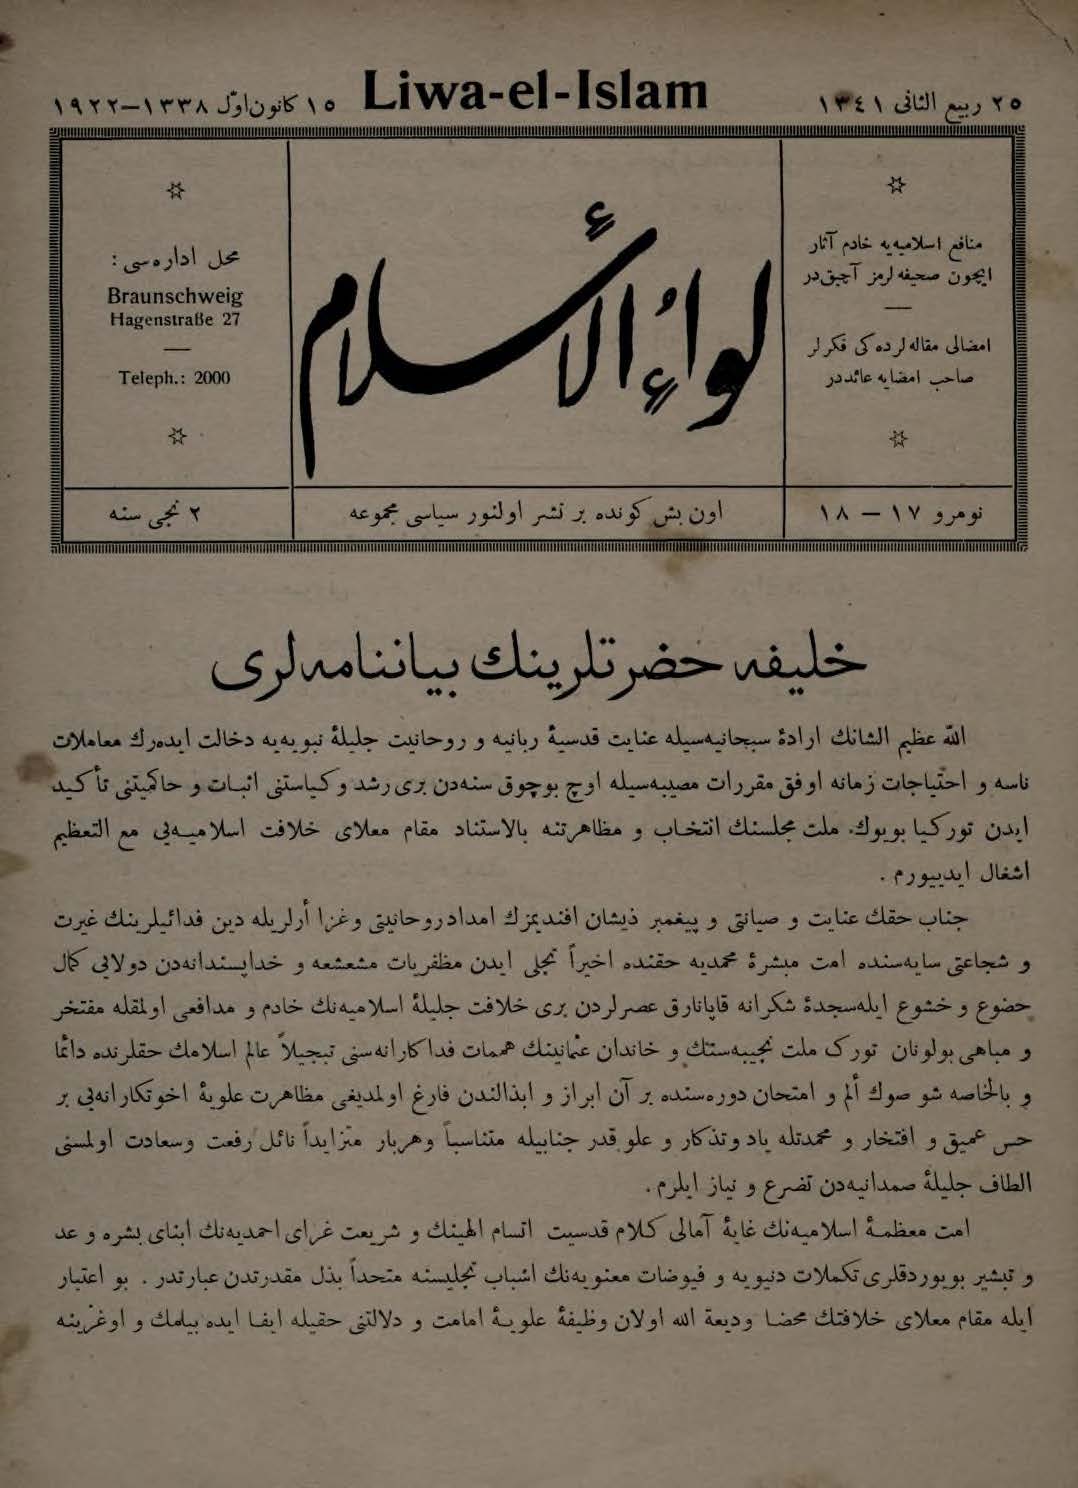 ٢٥ ربيع الثانى ١٣٤١
Liwa-el-Islam
١٥ كانون اوّل ١٣٣٨—١٩٢٢
منافع اسلاميه‌يه خادم آثار
ايچون صحيفه‌لرمز آچيق‌در
امضالى مقاله‌لرده‌كى فكرلر
صاحب امضايه عائددر
لواء الاسلام
محل اداره‌سى :
Braunschweig
Hagenstraße 27
Teleph.: 2000
نومرو ١٧ — ١٨
اون بش كونده بر نشر اولنور سياسى مجموعه
٢ نجى سنه
خليفه حضرتلرينك بياننامه‌لرى
اللّه عظيم الشانك ارادۀ سبحانيه‌سيله عنايت قدسيۀ ربانيه و روحانيت جليلۀ نبويه‌يه دخالت ايده‌رك معاملات
ناسه و احتياجات زمانه اوفق مقررات مصيبه‌سيله اوچ بوچوق سنه‌دن برى رشد و كياستنى اثبات و حاكميتنى تأكيد
ايدن توركيا بويوك ملت مجلسنك انتخاب و مظاهرتنه بالاستناد مقام معلاى خلافت اسلاميه‌يى مع التعظيم
اشغال ايدييورم .
جناب حقك عنايت و صيانتى و پيغمبر ذيشان افنديمزك امداد روحانيتى و غزا أرلريله دين فدائيلرينك غيرت
و شجاعتى سايه‌سنده امت مبشرۀ محمديه حقنده اخيراً تجلى ايدن مظفريات مشعشعه و خداپسندانه‌دن دولايى كمال
خضوع و خشوع ايله‌سجدۀ شكرانه قاپانارق عصرلردن برى خلافت جليلۀ اسلاميه‌نك خادم و مدافعى اولمقله مفتخر
و مباهى بولونان تورك ملت نجيبه‌سنك و خاندان عثمانينك همات فداكارانه‌سنى تبجيلاً عالم اسلامك حقلرنده دائما
و بالخاصه شو صوك ألم و امتحان دوره‌سنده بر آن ابراز و ابذالندن فارغ اولمديغى مظاهرت علويۀ اخوتكارانه‌يى بر
حس عميق و افتخار و محمدتله ياد و تذكار و علو قدر جنابيله متناسباً و هر بار متزايداً نائل رفعت و سعادت اولمسنى
الطاف جليلۀ صمدانيه‌دن تضرع و نياز ايلرم .
امت معظمۀ اسلاميه‌نك غايۀ آمالى كلام قدسيت اتسام الهينك و شريعت غراى احمديه‌نك ابناى بشره و عد
و تبشير بويوردقلرى تكملات دنيويه و فيوضات معنويه‌نك اسباب تجليسنه متحداً بذل مقدرتدن عبارتدر . بو اعتبار
ايله مقام معلاى خلافتك محضا وديعة الله اولان وظيفۀ علويۀ امامت و دلالتنى حقيله ايفا ايده بيلمك و اوغرينه